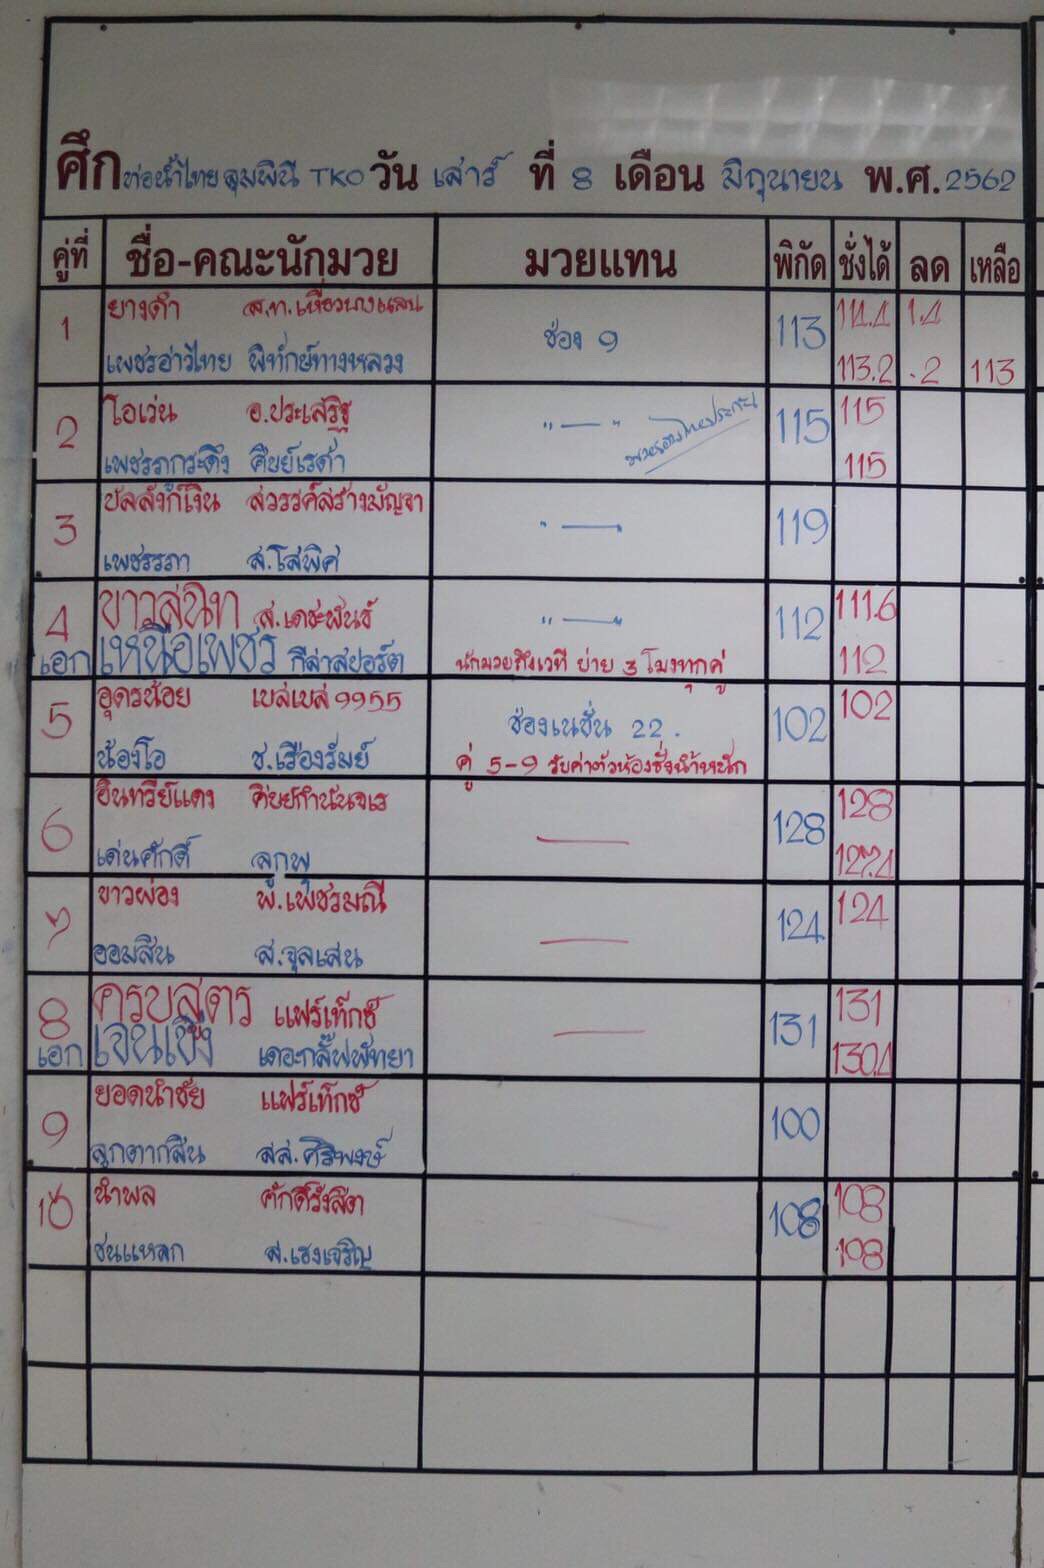 ศึก ท่อน้ำไทยลุมพินี TKO วัน เสาร์ ที่ 8 เดือน มิถุนายน พ.ศ. 2562
คู่ที่ ชื่อ-คณะนักมวย มวยแทน พิกัด ชั่งได้ ลด เหลือ
1 ยางดำ 113 114.4 1.4
เพชรอ่าวไทย พิทักษ์ทางหลวง ช่อง 9 113.2 .2 113
2 โอเว่น อ.ประเสริฐ " — " 115 115
เพชรภูกระดึง ศิษย์เรดำ 115
3 บัลลังก์เงิน สวรรค์สร้างมัญจา — 119
เพชรรภา ส.โสพิศ
4 ขาวสนิท ส.เดชะพันธ์ " — " 112 111.6
เอก เหนือเพชร กีล่าสปอร์ต นักมวยถึงเวที บ่าย 3 โมงทุกคู่ 112
5 อุดรน้อย เบสเบส 9955 ช่องเนชั่น 22. 102 102
น้องโอ ช.เรืองรัมย์ คู่ 5-9 รับค่าตัวห้องชั่งน้ำหนัก
6 อินทรีย์แดง ศิษย์กำนันจเร — 128 128
เด่นศักดิ์ ลูกพุ
7 ขาวผ่อง พ.เพชรมณี — 124 124
ออมสิน ส.จุลเสน
8 ครบสูตร แฟร์เท็กซ์ — 131 131
เอก เจนเชิง เดอะกลั๊ฟพัทยา 130.4
9 ยอดนำชัย แฟร์เท็กซ์ 100
ลูกตากสิน สส.ศิริพงษ์
10 นำพล ศักดิ์รังสิต 108 108
ชนแหลก ส.เฮงเจริญ 108